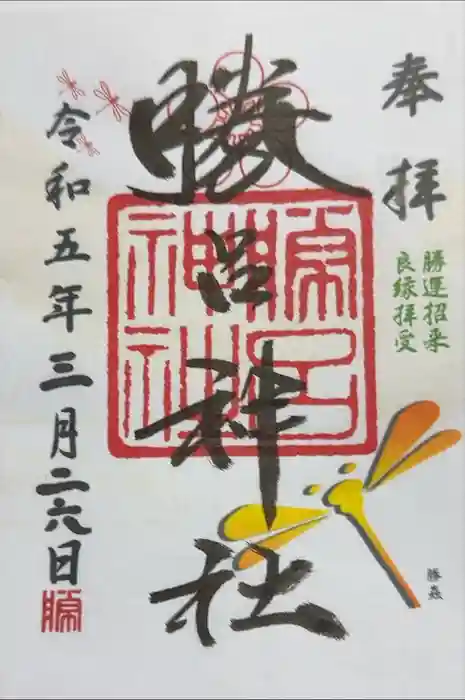 奉拝
勝運招来
良縁拝受
勝呂神社
令和五年三月二六日
勝虫